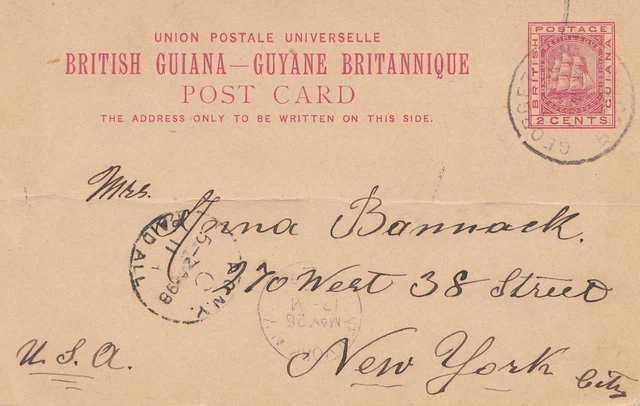 UNION POSTALE UNIVERSELLE
BRITISH GUIANA—GUYANE BRITANNIQUE
POST CARD
THE ADDRESS ONLY TO BE WRITTEN ON THIS SIDE.
POSTAGE
BRITISH
GUIANA
2 CENTS
Mrs.
Anna Bannack.
270 West 38 Street
New York City
U.S.A.
PAID ALL
N.Y.
98
MAY 28